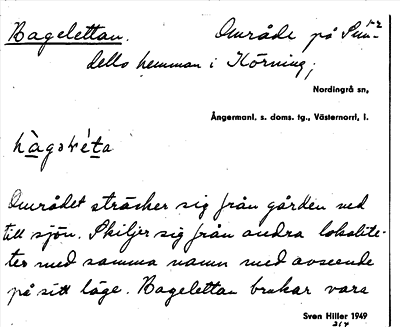 Bagelettan. Område på Sun-
dells hemman i Körning,
Nordingrå sn,
Ångermanl. s. doms. tg., Västernorrl. l.
Området sträcker sig från gården ned
till sjön. Skiljer sig från andra lokalite-
ter med samma namn med avseende
på sitt läge. Bagelettan brukar vara
Sven Hiller 1949